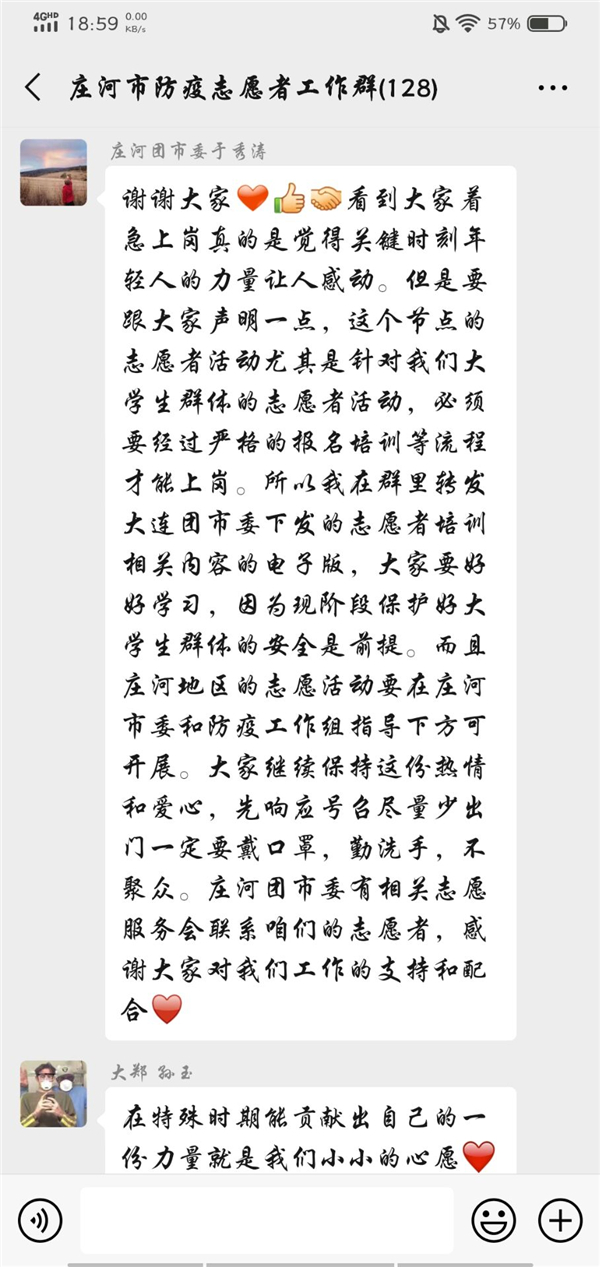 4GHD 18:59 0.00 KB/s 57%
庄河市防疫志愿者工作群(128)
庄河团市委于秀涛
谢谢大家❤️👍🤝看到大家着
急上岗真的是觉得关键时刻年
轻人的力量让人感动。但是要
跟大家声明一点，这个节点的
志愿者活动尤其是针对我们大
学生群体的志愿者活动，必须
要经过严格的报名培训等流程
才能上岗。所以我在群里转发
大连团市委下发的志愿者培训
相关内容的电子版，大家要好
好学习，因为现阶段保护好大
学生群体的安全是前提。而且
庄河地区的志愿活动要在庄河
市委和防疫工作组指导下方可
开展。大家继续保持这份热情
和爱心，先响应号召尽量少出
门一定要戴口罩，勤洗手，不
聚众。庄河团市委有相关志愿
服务会联系咱们的志愿者，感
谢大家对我们工作的支持和配
合❤️
大郑 孙玉
在特殊时期能贡献出自己的一
份力量就是我们小小的心愿❤️